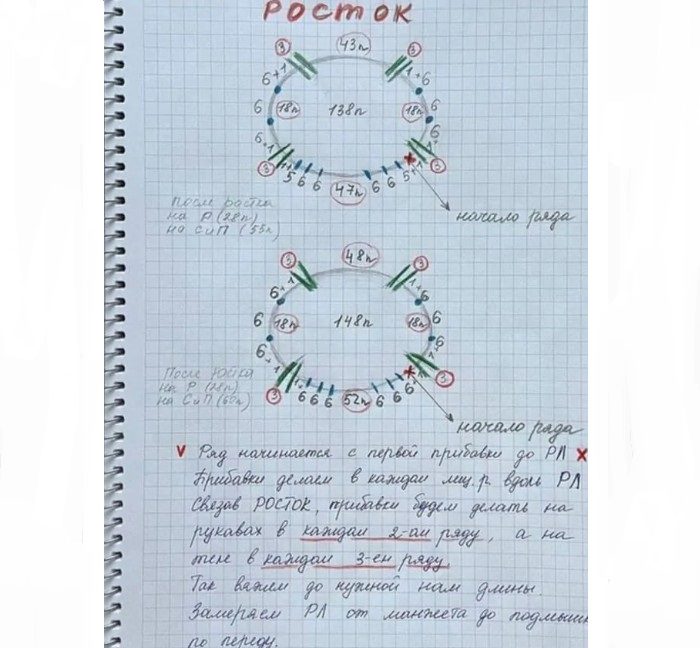 РОСТОК
3 43п 3
6+1 1+6
6 18п 138п 18п 6
6+1 1+6
3 1+5 6 6 47п 6 6 5+1 3
После ростка
на Р (28п)
на С и П (55п)
начало ряда
3 48п 3
6+1 1+6
6 18п 148п 18п 6
6+1 1+6
3 1+6 6 6 52п 6 6 6+1 3
После ростка
на Р (28п)
на С и П (60п)
начало ряда
v Ряд начинается с первой прибавки до РЛ x
Прибавки делаем в каждом лиц. р. вдоль РЛ
Связав РОСТОК, прибавки будем делать на
рукавах в каждом 2-ом ряду, а на
теле в каждом 3-ем ряду.
Так вяжем до нужной нам длины.
Замеряем РЛ от манжета до подмышк
по переду.